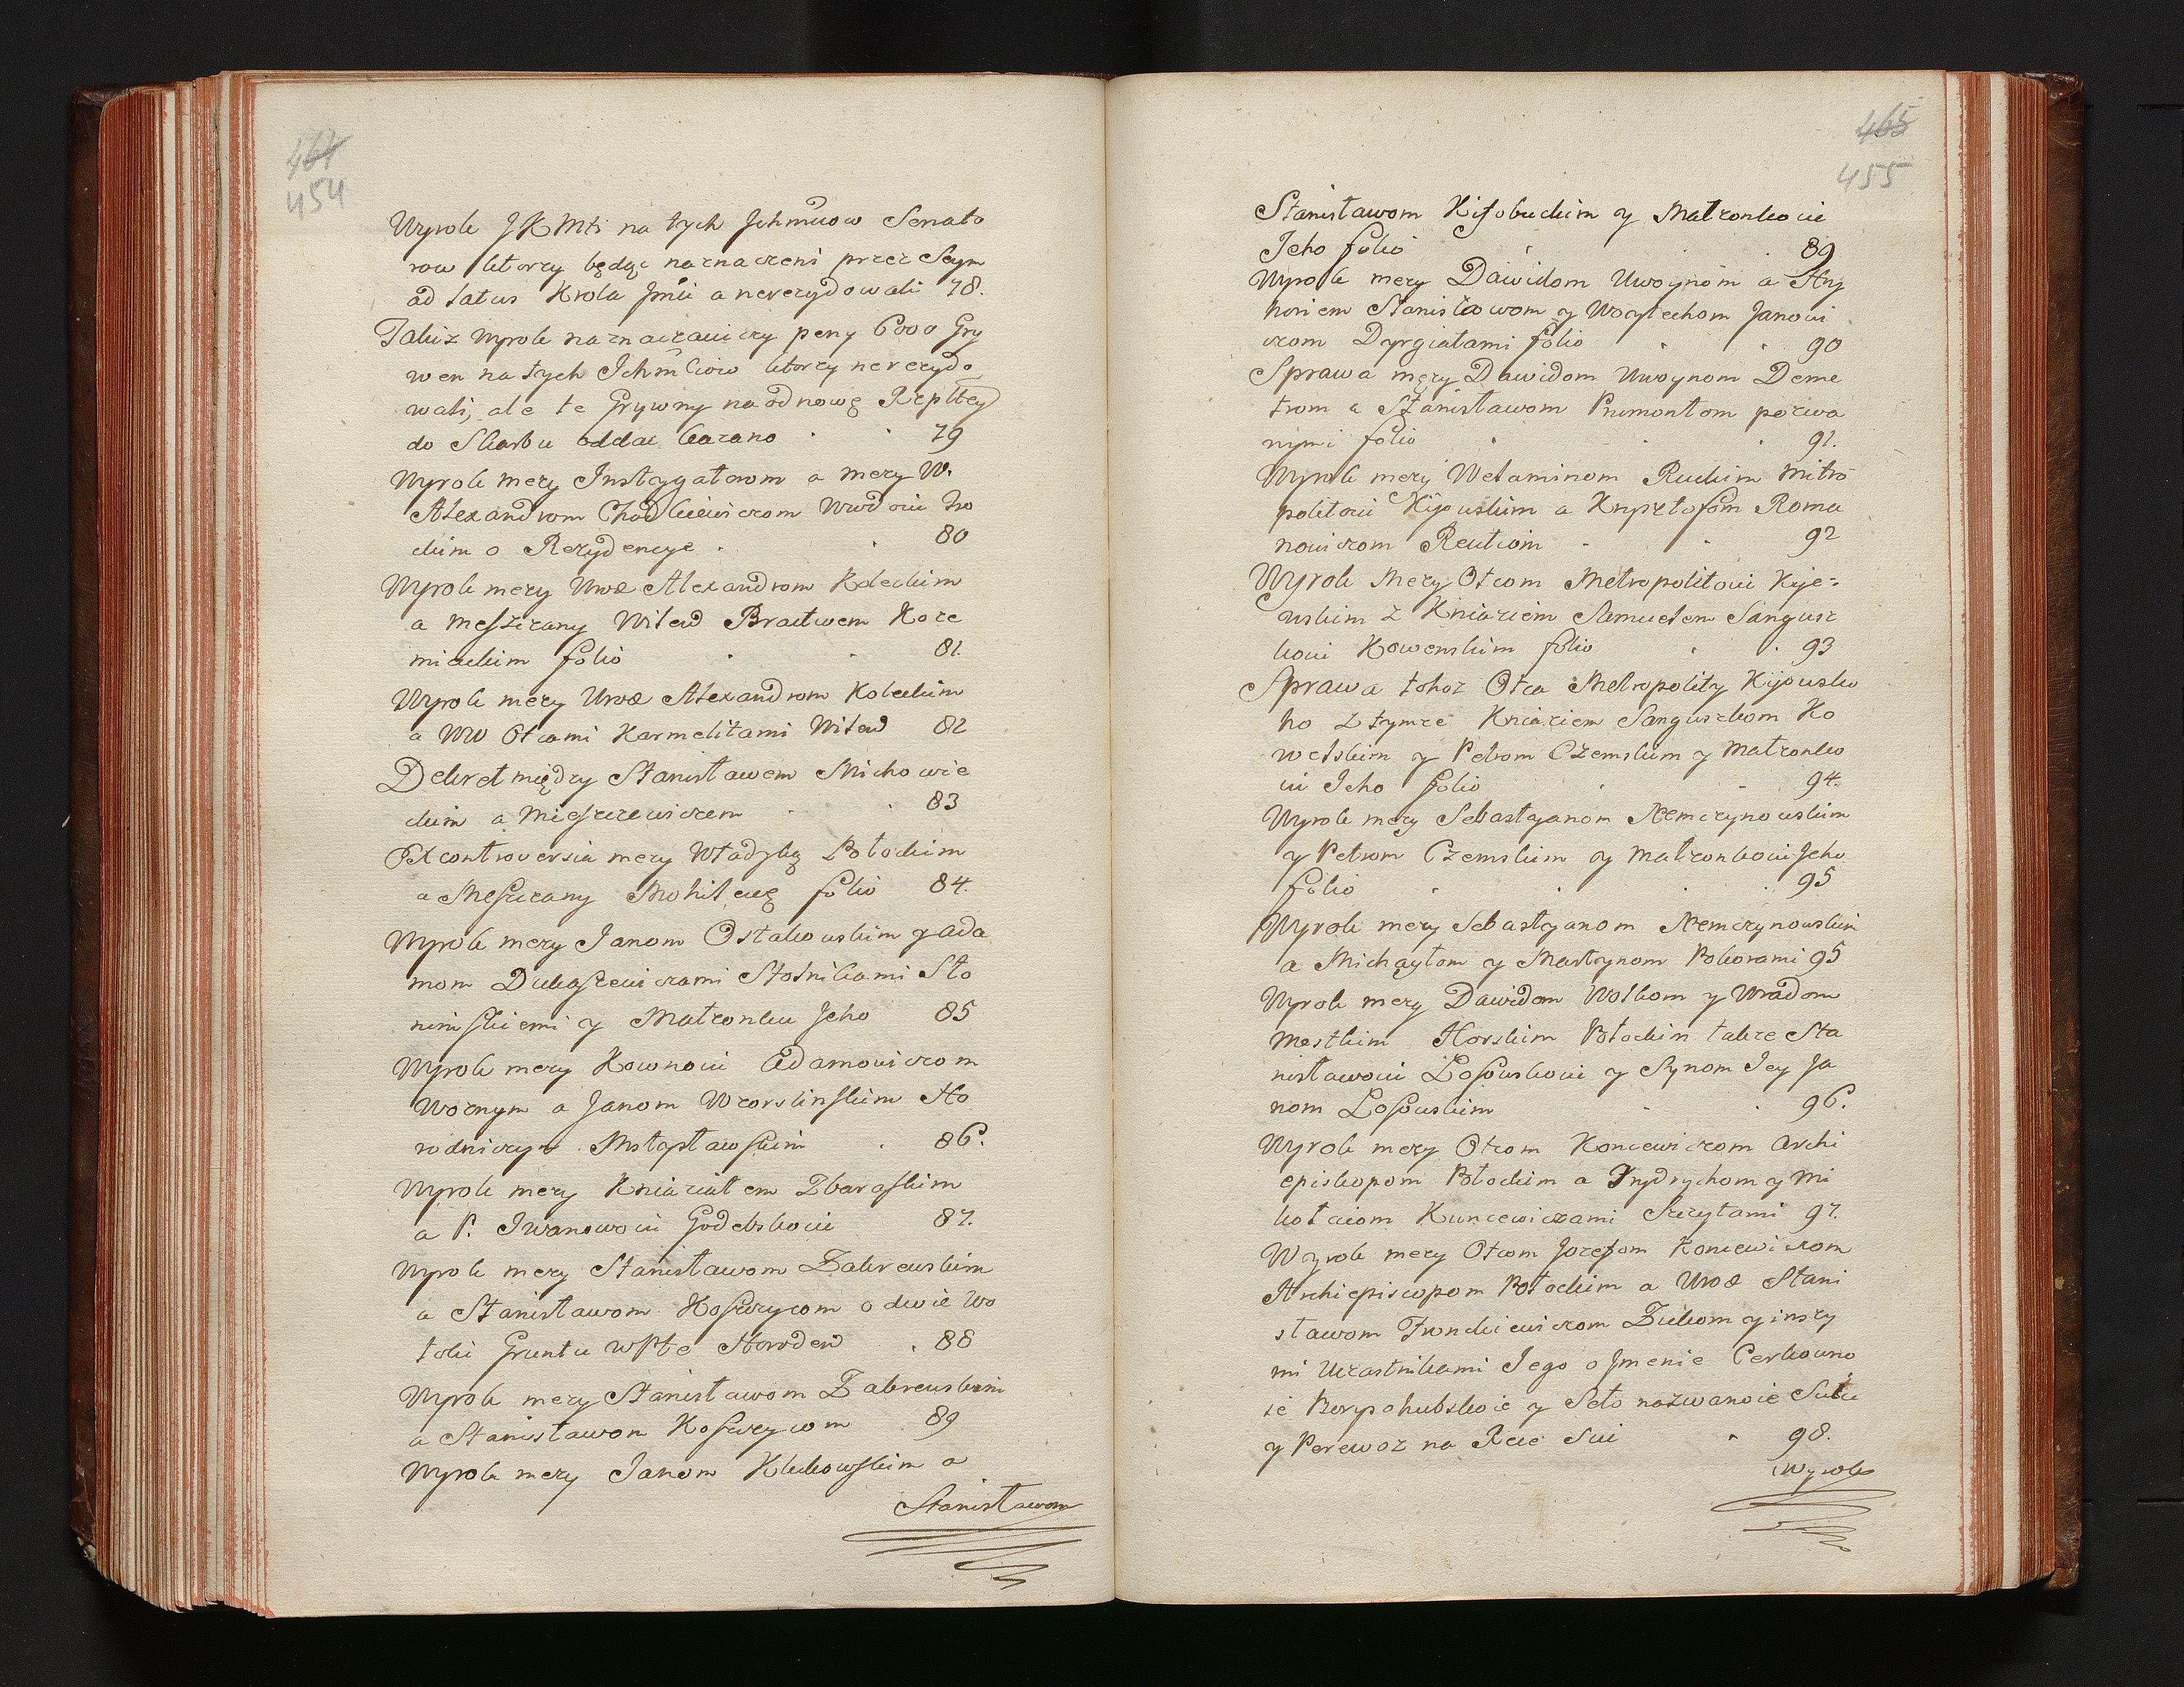 464
454
Wyrok JKMti na tych Ichmciow Senato
row ktorzy będąc naznaczeni przez Seym
ad latus Krola Jmci a nerezydowali 78.
Takiz Wyrok naznaczaiuczy peny 6000 Gry
wen na tych Ichmciow ktorzy nerezydo
wali, ale te Grywny na odnowę Rzpltey
do Skarbu oddac kazano 79
Wyrok mezy Instygatorom a mezy W.
Alexandrom Chodkiewiczom Wwdoiu Tro
ckim o Rezydencye 80
Wyrok mezy Uwæ Alexandrom Koleckim
a Meszczany Witend Bractwem Koze
miackim folio 81.
Wyrok mezy Urodz Alexandrom Koleckim
a WW Otcami Karmelitami Witend 82
Dekret między Stanisławem Michowie
ckim a Mieszczewiczem 83
Ex controversia mezy Władyką Połockim
a Meszczany Mohilewę folio 84.
Wyrok mezy Janom Ostakowskim y Ada
mom Dukaszewiczami Stolnikami Sło
nimskiemi y Małzonku Jeho 85
Wyrok mezy Kownoiu Adamowiczom
Woznym a Janom Wzorslinskim Ho
rodniczym Mstysławskim 86.
Wyrok mezy Kniaziatem Zbaraskim
a P. Iwanowoiu Godebskoiu 87.
Wyrok mezy Stanisławom Zakrewskim
a Stanisławom Koszczycom o dwie Wo
łoki Gruntu w Pte Horoden 88
Wyrok mezy Stanisławom Zakrewskim
a Stanisławom Koszczycom 89
Wyrok mezy Janom Klukowskim a
Stanisławom
465
455
Stanisławom Kisobuckim y Małzonkoiu
Jeho folio 89
Wyrok mezy Dawidom Uwoynom a Hry
horiem Stanisławom y Woytechom Janowi
czom Dyrgiałami folio 90
Sprawa mezy Dawidom Uwoynom Deme
trom a Stanisławom Prumontom pozwa
nymi folio 91.
Wyrok mezy Welaminom Ruckim Mitro
politoiu Kijowskim a Krysztofom Roma
nowiczom Reutom 92
Wyrok Mezy Otcom Metropolitoiu Kije=
wskim z Kniaziem Samuelem Sangusz
koiu Kowenskim folio 93
Sprawa tohoz Otca Metropolity Kijowsko
ho z tymze Kniaziem Sanguszkom Ko
welskim y Petrom Czemskim y Małzonko
iu Jeho folio 94.
Wyrok mezy Sebastyanom Nemczynowskim
y Petrom Czemskim y Małzonkoiu Jeho
folio 95
Wyrok mezy Sebastyanom Nemczynowskim
a Michayłom y Mastynom Pokorami 95
Wyrok mezy Dawidom Wolkom y Uradom
Mestkim Horskim Połockim takze Sta
nisławoiu Łosowskoiu y Synom Jey Ja
nom Łosowskim 96.
Wyrok mezy Otcom Koncewiczom Archi
episkopom Połockim a Frydrychom y Mi
kołaiom Kuncewiczami Szczytami 97.
Wyrok mezy Otcom Jozefom Koncewiczom
Archiepiscopom Połockim a Uroæ Stani
sławom Fronckiewiczom Zukom y inszy
mi Uczastnikami Jego o Jmenie Cerkowno
ie Borysohubskoie y Seło nazwanoie Sułu
y Perewoz na Rece Sui 98.
Wyrok